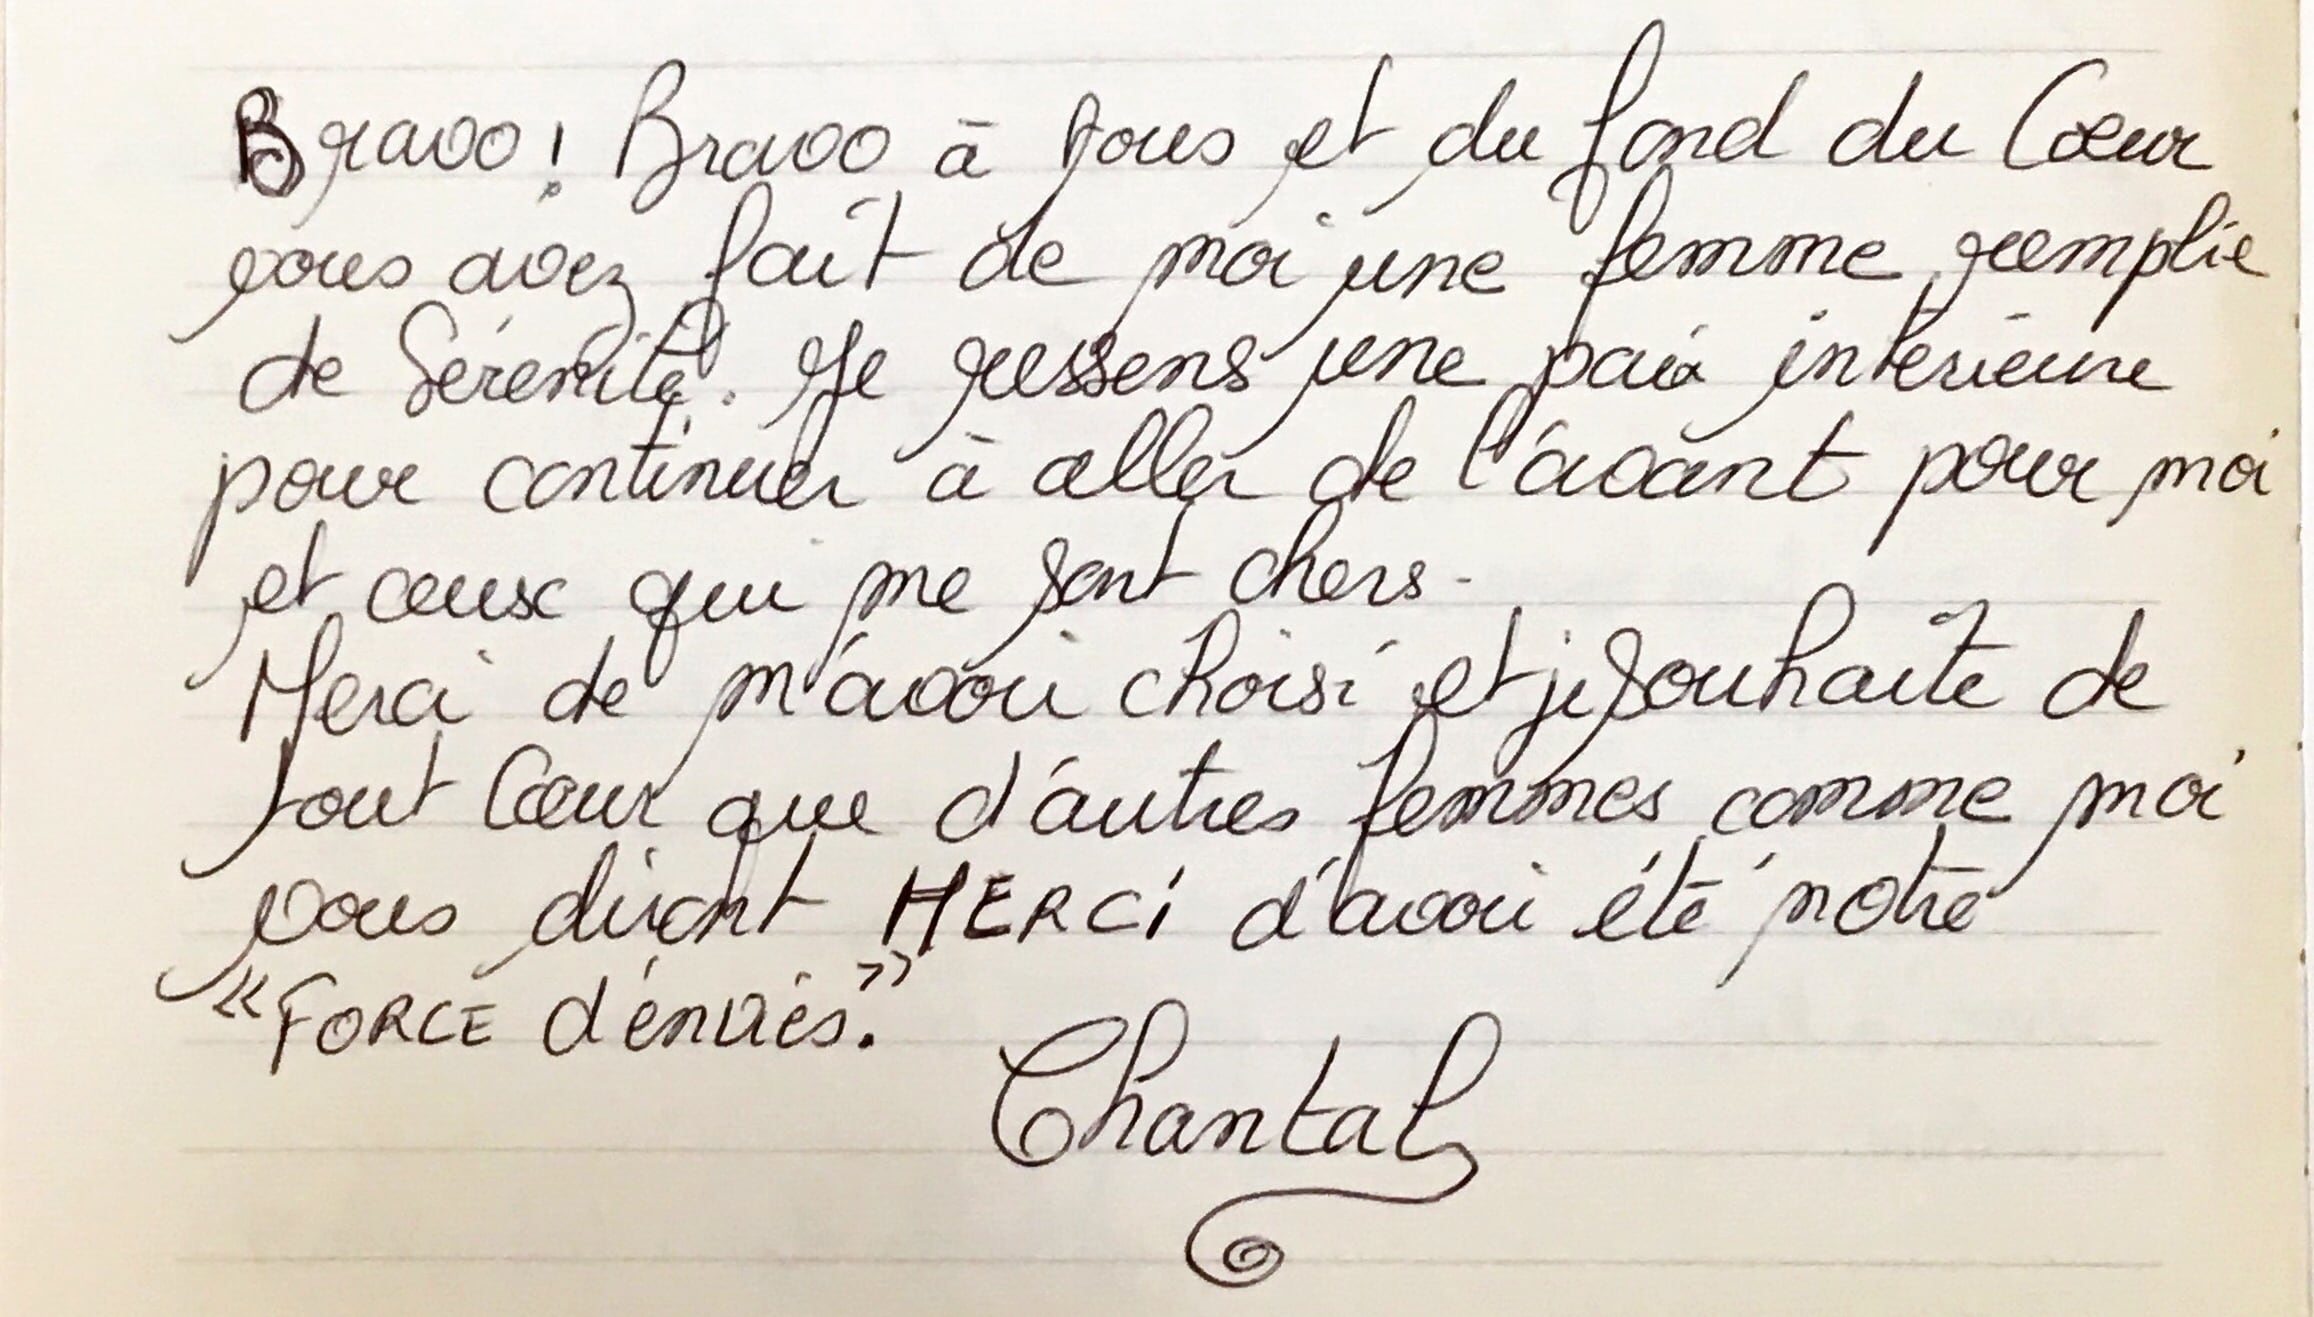 Bravo ! Bravo à tous et du fond du Cœur
vous avez fait de moi une femme remplie
de Sérénité. Je ressens une paix intérieure
pour continuer à aller de l'avant pour moi
et ceux qui me sont chers.
Merci de m'avoir choisi et je souhaite de
tout Cœur que d'autres femmes comme moi
vous diront MERCI d'avoir été notre
"FORCE d'envies."
Chantal